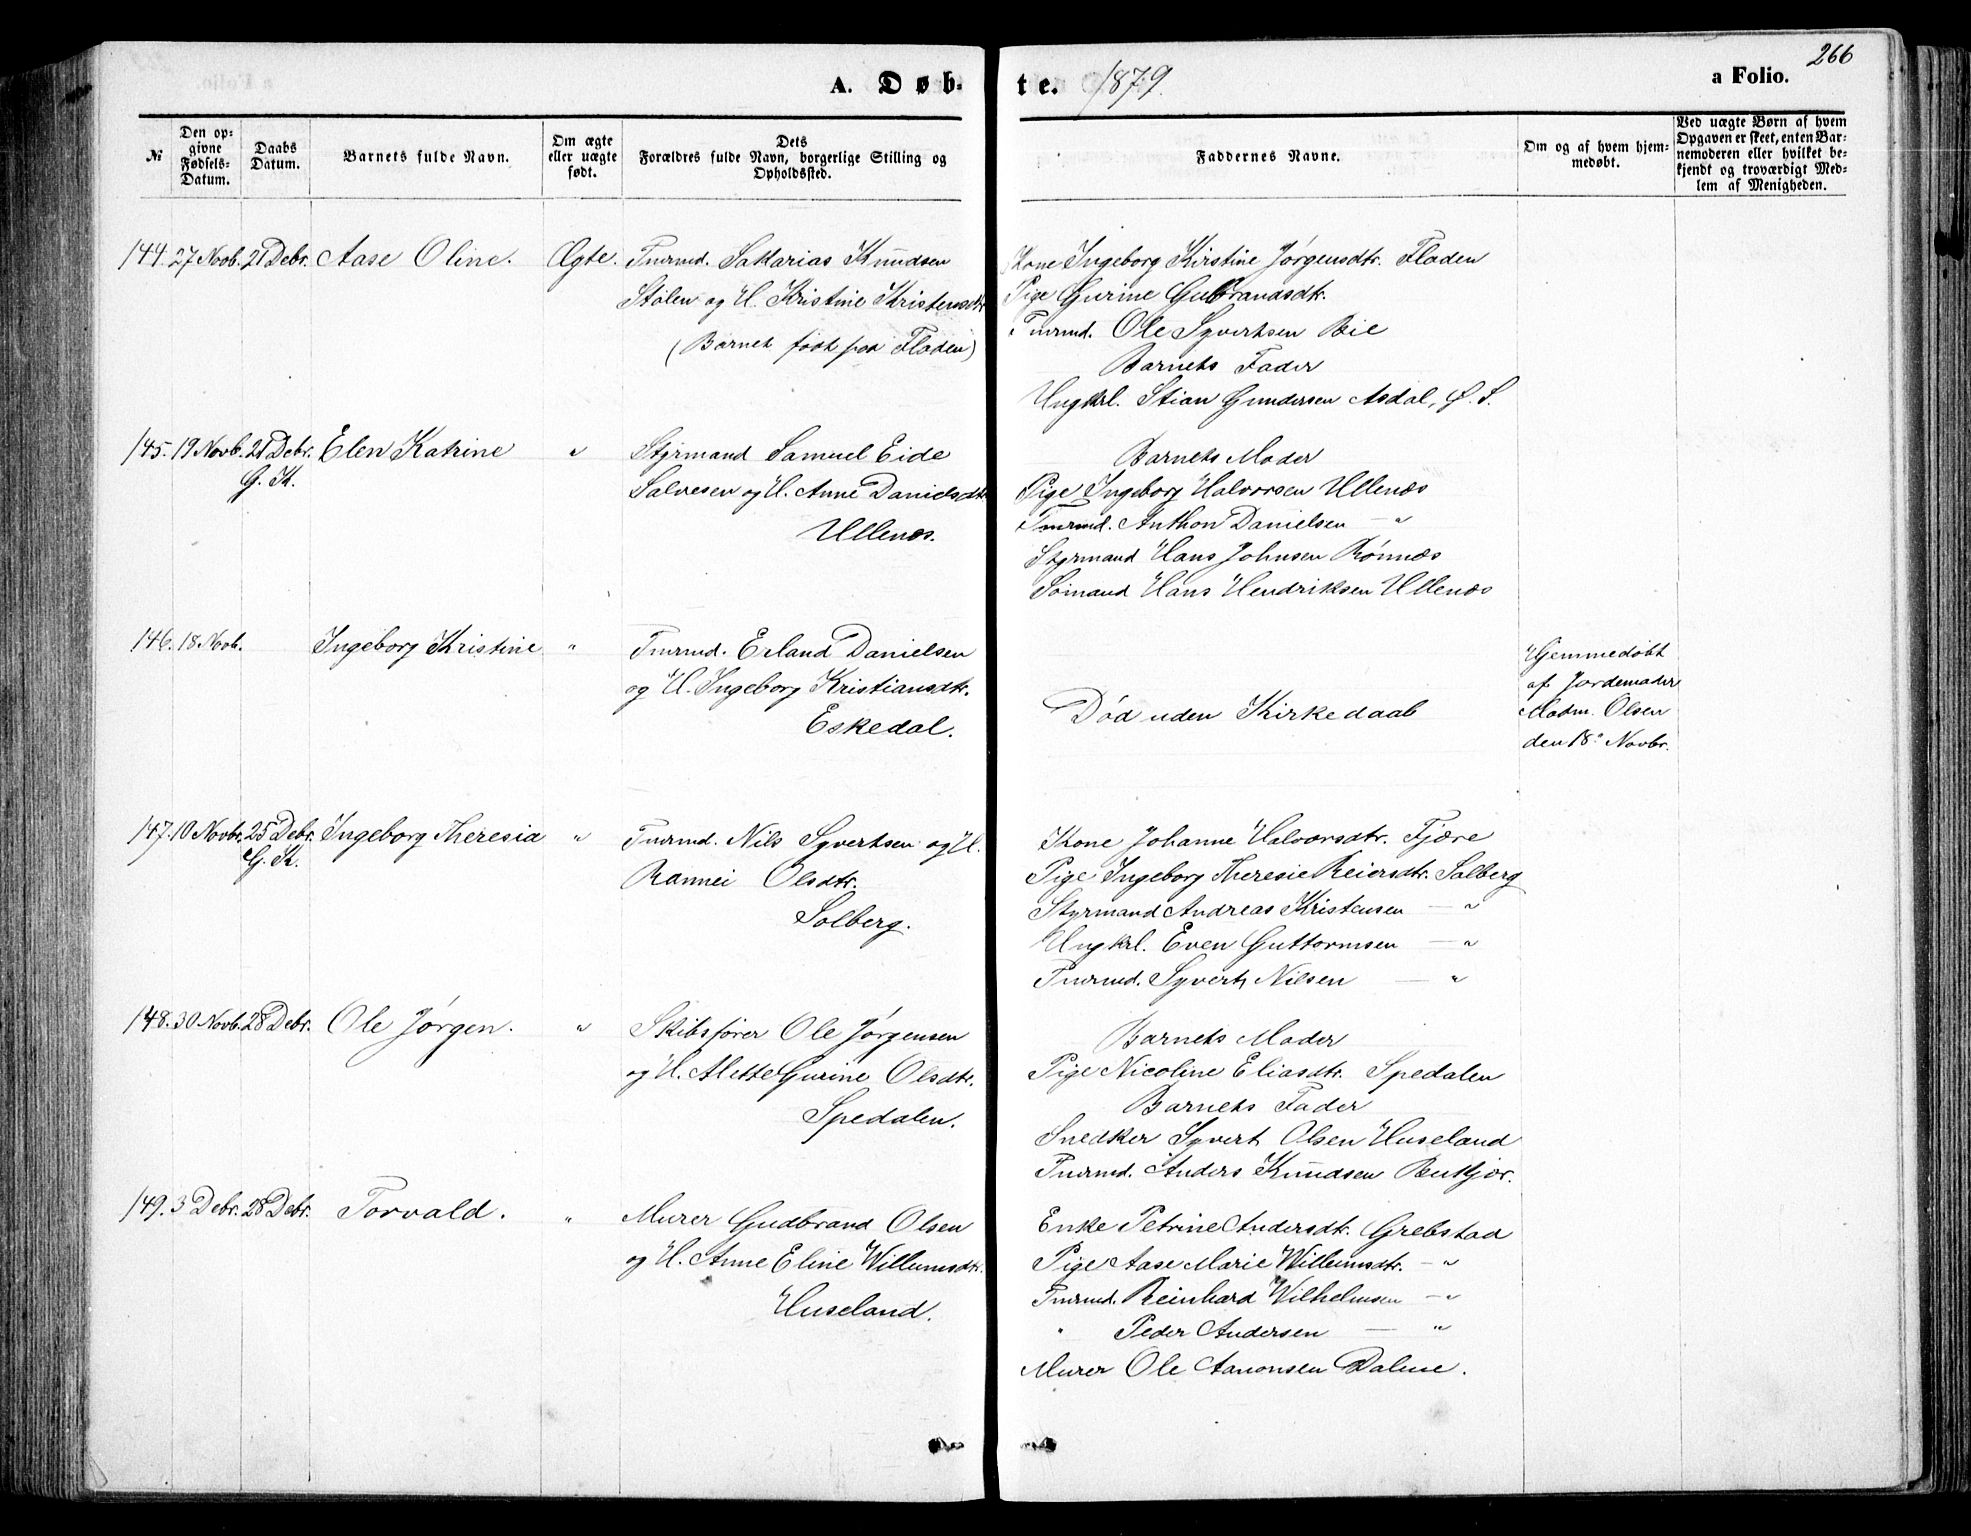 266
A. Døb-
te. 1879
a Folio.
№
Den op-
givne
Fødsels-
Datum.
Daabs
Datum.
Barnets fulde Navn.
Om ægte
eller uægte
født.
Dets
Forældres fulde Navn, borgerlige Stilling og
Opholdssted.
Faddernes Navne.
Om og af hvem hjem-
medøbt.
Ved uægte Børn af hvem
Opgaven er skeet, enten Bar-
nemoderen eller hvilket be-
kjendt og troværdigt Med-
lem af Menigheden.
144. 27 Novb. 21 Debr. Aase Oline. Ægte. Tmrmd. Sakarias Knudsen
Stølen og H. Kristine Kristensdtr
(Barnet født paa Fladen)
Kone Ingeborg Kirstine Jørgensdtr. Fladen
Pige Gurine Gulbrandsdtr.
Tmrmd. Ole Syvertsen Bie
Barnets Fader
Ungkrl. Stian Gundersen Asdal, Ø. S.
145. 19 Novb. 21 Debr. Elen Katrine " Styrmand Samuel Eide
G. K.
Salvesen og H. Anne Danielsdtr
Ullenes.
Barnets Moder
Pige Ingeborg Halvorsen Ullenæs
Tmrmd. Anthon Danielsen — "
Styrmand Hans Johnsen Rønnæs
Sømand Hans Hendriksen Ullenæs
146. 18 Novb. Ingeborg Kristine " Tmrmd. Erland Danielsen
og H. Ingeborg Kristiansdtr.
Eskedal.
Død uden Kirkedaab
Hjemmedøbt
af Jordemoder
Madm. Olsen
den 18. Novbr.
147. 10 Novbr. 25 Debr. Ingeborg Theresia " Tmrmd. Nils Syvertsen og H.
G. K.
Rannei Olsdtr.
Solberg.
Kone Johanne Halvorsdtr. Fjære
Pige Ingeborg Theresie Reiersdtr. Solberg
Styrmand Andreas Kristensen — "
Ungkrl. Even Guttormsen — "
Tmrmd. Syvert Nilsen — "
148. 30 Novb. 28 Debr. Ole Jørgen. " Skibsfører Ole Jørgensen
og H. Mette Gurine Olsdtr.
Spedalen.
Barnets Moder
Pige Nicoline Eliasdtr. Spedalen
Barnets Fader
Snedker Syvert Olsen Huseland
Tmrmd. Anders Knudsen
149. 3 Debr. 28 Debr. Torvald. " Murer Gudbrand Olsen
og H. Anne Eline Willumsdtr.
Huseland.
Enke Petrine Andersdtr. Grebstad
Pige Aase Marie Willumsdtr. — "
Tmrmd. Reinhard Wilhelmsen — "
" Peder Andersen — "
Murer Ole Aanonsen Dalene.